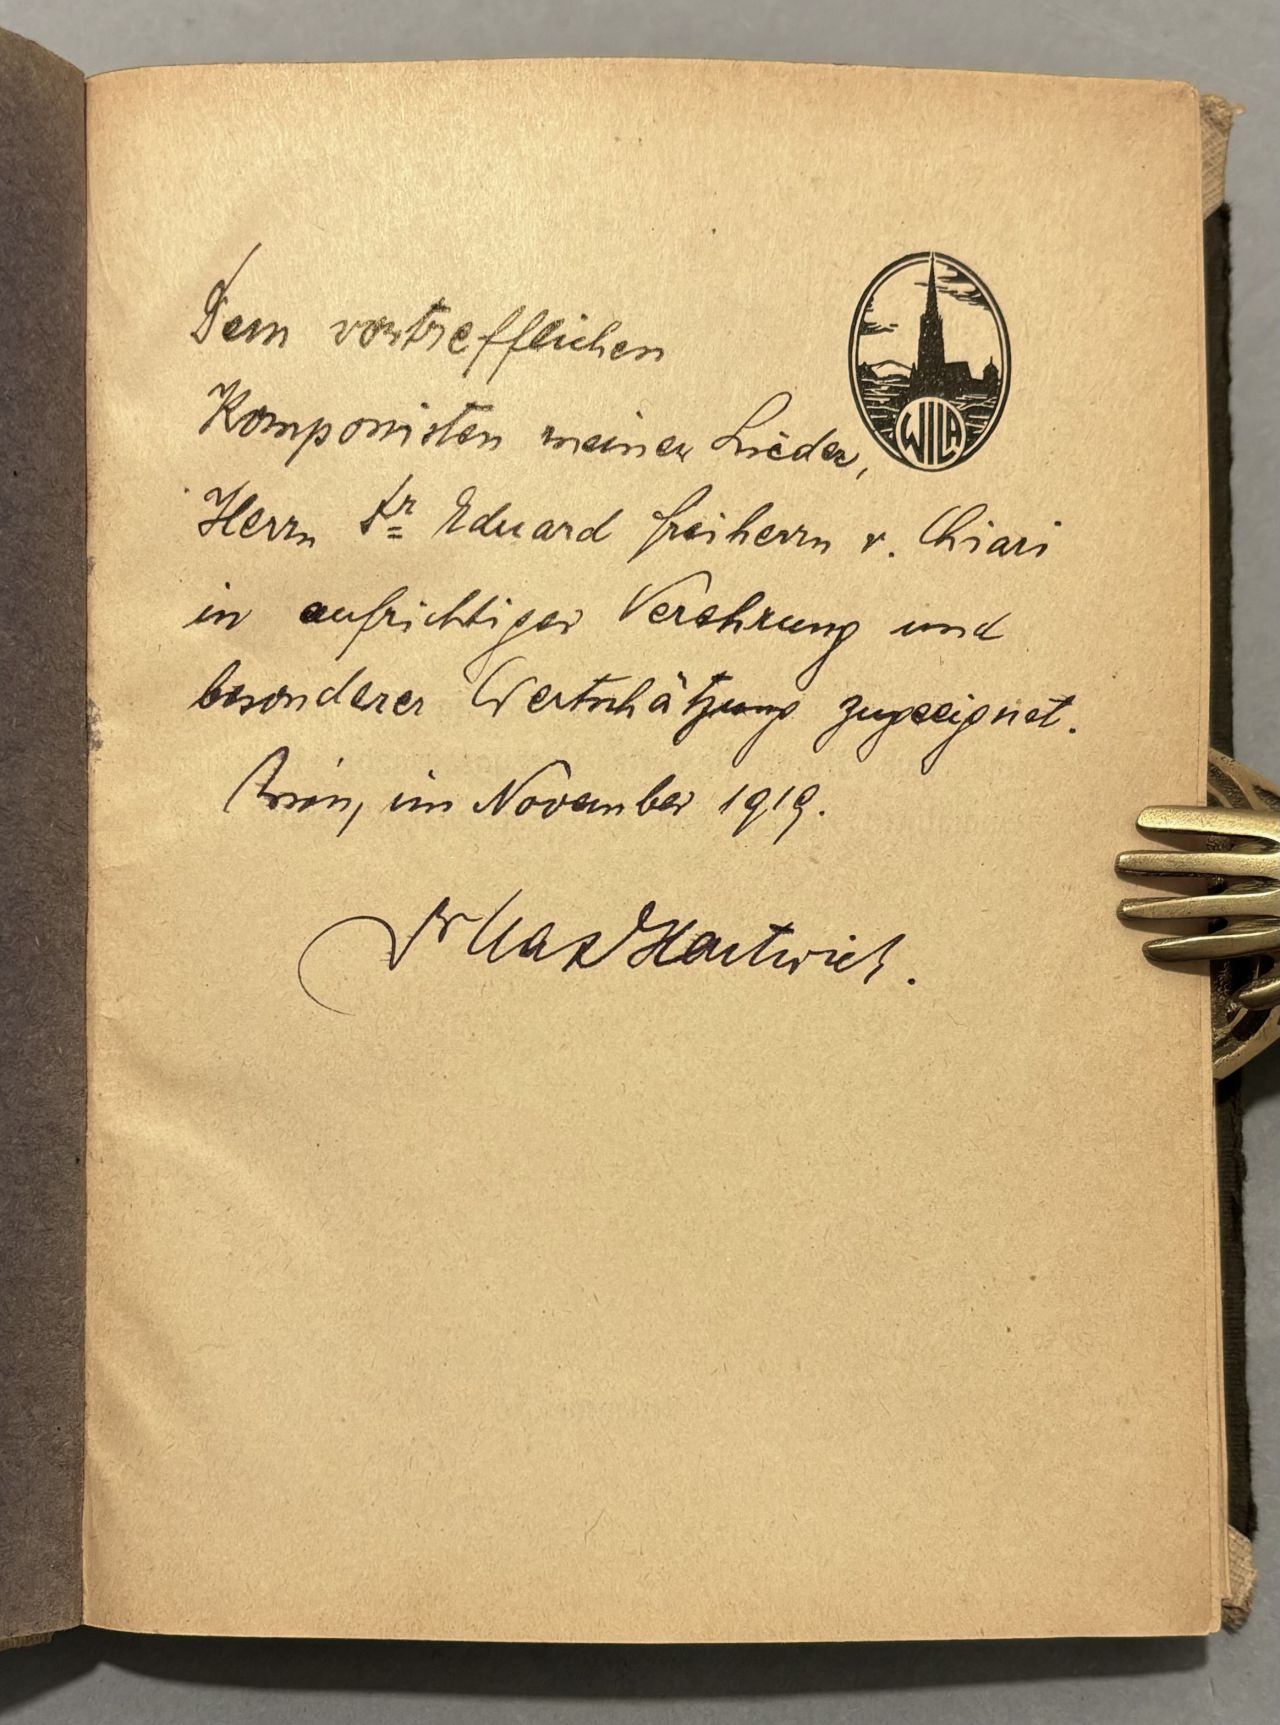 Dem vortrefflichen
Komponisten meiner Lieder,
WILA
Herrn Dr Eduard Freiherrn v. Chiari
in aufrichtiger Verehrung und
besonderer Wertschätzung zugeeignet.
Wien, im November 1919.
Dr Max Hartwich.